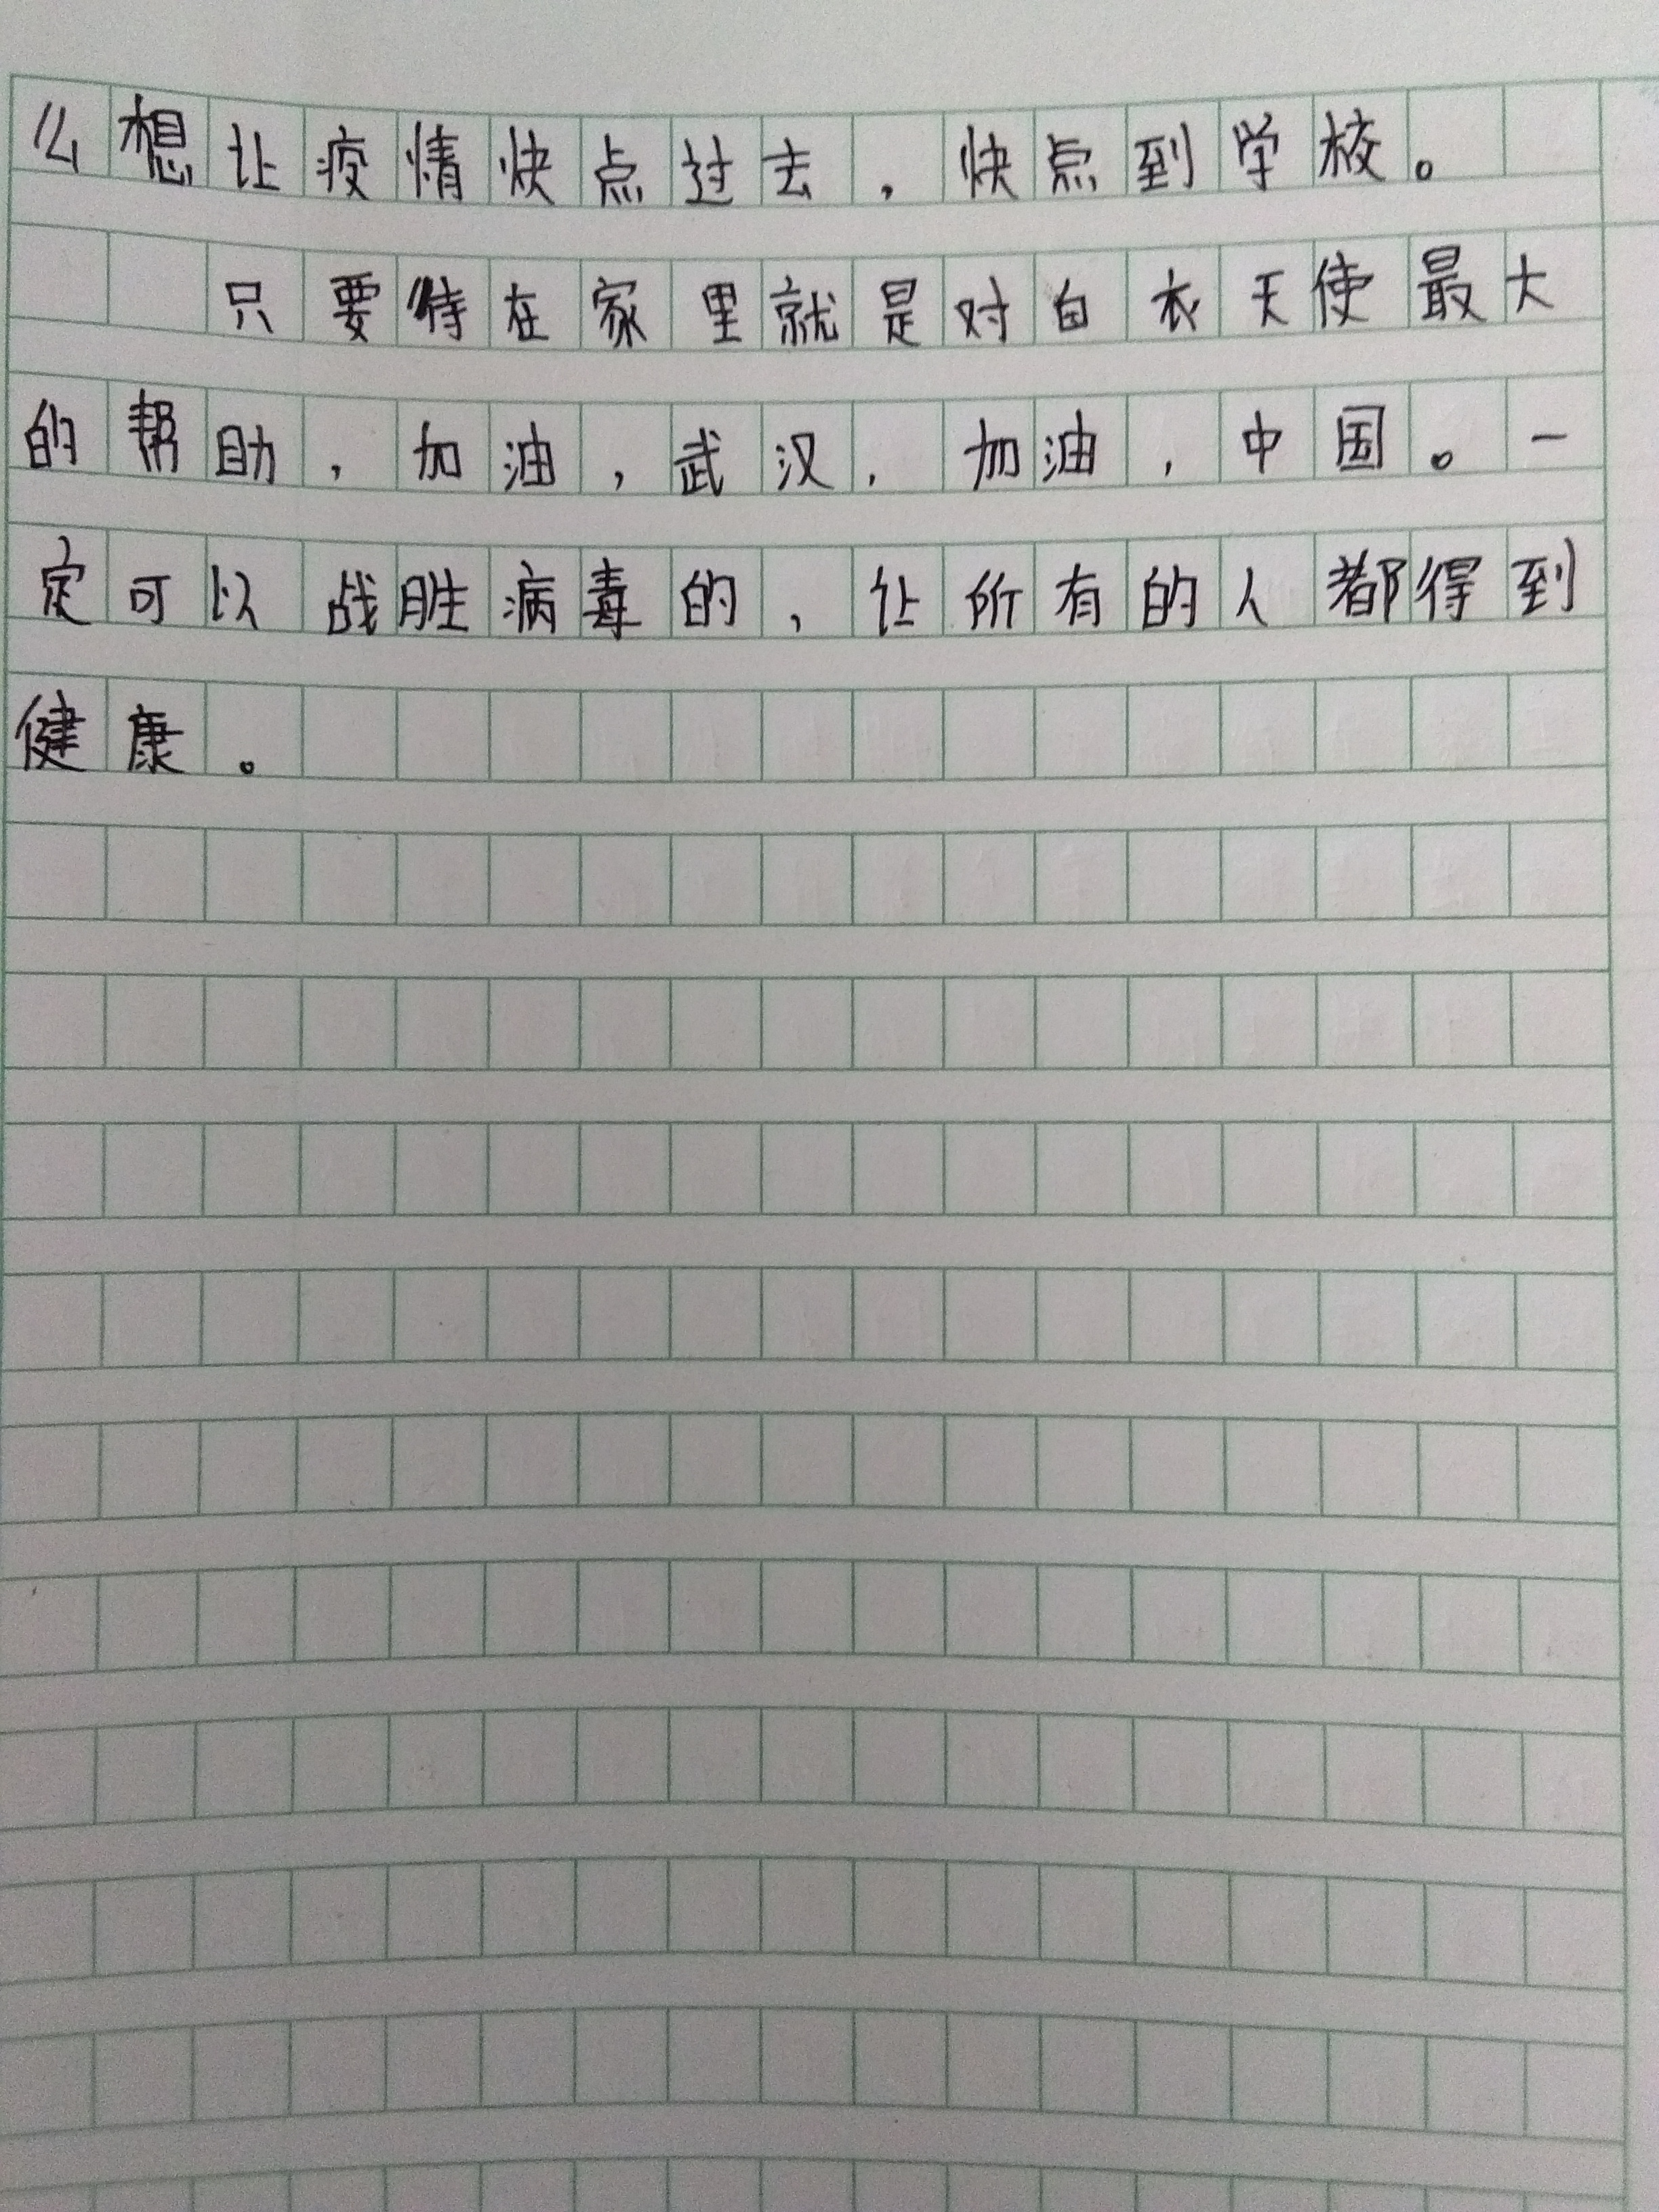 么想让疫情快点过去，快点到学校。
只要待在家里就是对白衣天使最大
的帮助，加油，武汉，加油，中国。一
定可以战胜病毒的，让所有的人都得到
健康。